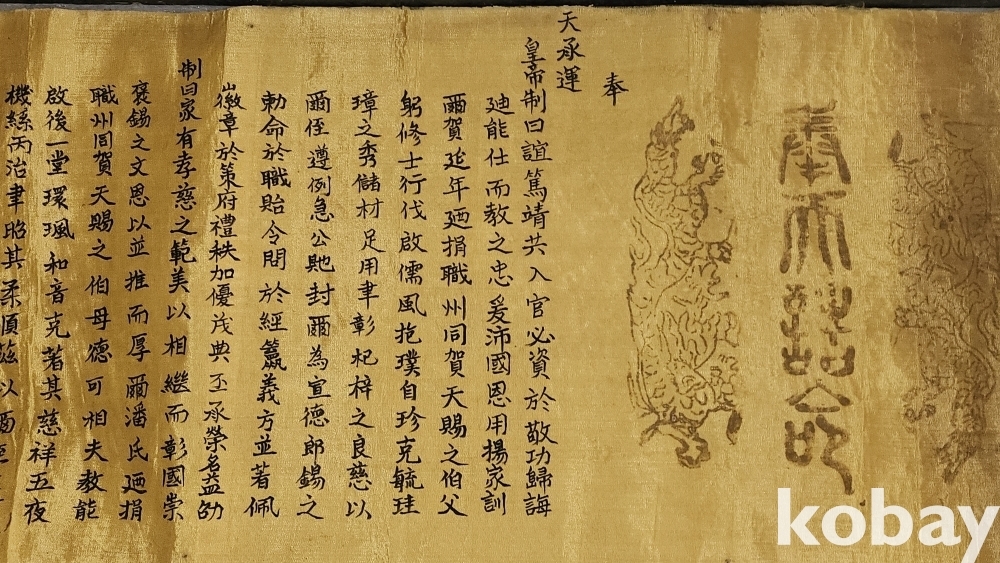 奉天誥命
奉
天承運
皇帝制曰誼篤靖共入官必資於敬功歸誨
廸能仕而教之忠爰沛國恩用揚家訓
爾賀延年廼捐職州同賀天賜之伯父
躬修士行代啟儒風抱璞自珍克毓珪
璋之秀儲材足用聿彰杞梓之良慈以
爾侄遵例急公貤封爾為宣德郎錫之
勅命於職貽令問於經籯義方並著佩
徽章於策府禮秩加優茂典丕承榮名益劭
制曰家有孝慈之範美以相繼而彰國崇
褒錫之文恩以並推而厚爾潘氏廼捐
職州同賀天賜之伯母德可相夫教能
啟後一堂環珮和音克著其慈祥五夜
機絲丙治聿昭其柔順茲以爾
kobay